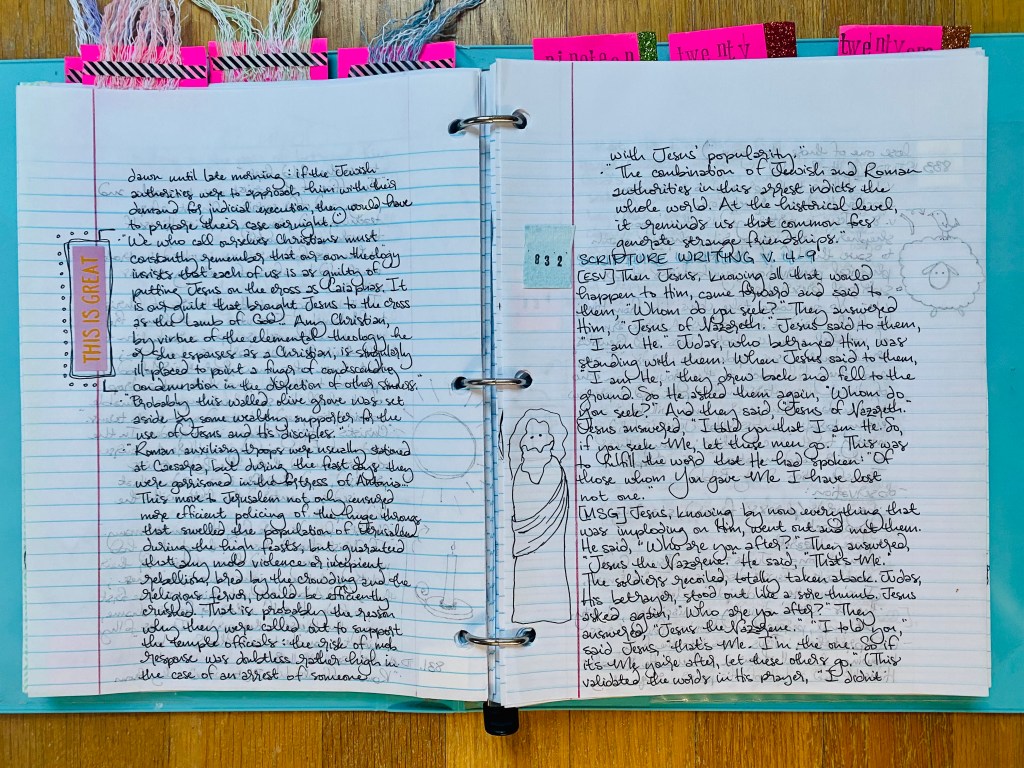 nineteen
twenty
twenty
THIS IS GREAT
dawn until late morning: if the Jewish
authorities were to approach him with their
demand for judicial execution, they would have
to prepare their case overnight.
"We who call ourselves Christians must
constantly remember that our own theology
insists that each of us is as guilty of
putting Jesus on the cross as Caiaphas. It
is our guilt that brought Jesus to the cross
as the Lamb of God... Any Christian,
by virtue of the elemental theology he
or she espouses as a Christian, is singularly
ill placed to point a finger of condescending
condemnation in the direction of other sinners."
"Probably this walled olive grove was set
aside by some wealthy supporter for the
use of Jesus and His disciples."
"Roman auxiliary troops were usually stationed
at Caesarea, but during the feast days they
were garrisoned in the fortress of Antonia.
This move to Jerusalem not only ensured
more efficient policing of the huge throngs
that swelled the population of Jerusalem
during the high feasts, but guaranteed
that any mob violence or incipient
rebellion, bred by the crowding and the
religious fervor, would be efficiently
crushed. That is probably the reason
why they were called out to support
the temple officials: the risk of mob
response was doubtless rather high in
the case of an arrest of someone
831
with Jesus' popularity."
"The combination of Jewish and Roman
authorities in this arrest indicts the
whole world. At the historical level,
it reminds us that common foes
generate strange friendships."
832
SCRIPTURE WRITING V. 4-9
[ESV] Then Jesus, knowing all that would
happen to Him, came forward and said to
them, "Whom do you seek?" They answered
Him, "Jesus of Nazareth." Jesus said to them,
"I am He." Judas, who betrayed Him, was
standing with them. When Jesus said to them,
"I am He," they drew back and fell to the
ground. So He asked them again, "Whom do
you seek?" And they said, "Jesus of Nazareth."
Jesus answered, "I told you that I am He. So,
if you seek Me, let these men go." This was
to fulfill the word that He had spoken: "Of
those whom You gave Me I have lost
not one."
[MSG] Jesus, knowing by now everything that
was imploding on Him, went out and met them.
He said, "Who are you after?" They answered,
"Jesus the Nazarene." He said, "That's Me."
The soldiers recoiled, totally taken aback. Judas,
His betrayer, stood out like a sore thumb. Jesus
asked again, "Who are you after?" They
answered, "Jesus the Nazarene." "I told you,"
said Jesus, "that's Me. I'm the one. So if
it's Me you're after, let these others go." (This
validated the words in His prayer, "I didn't